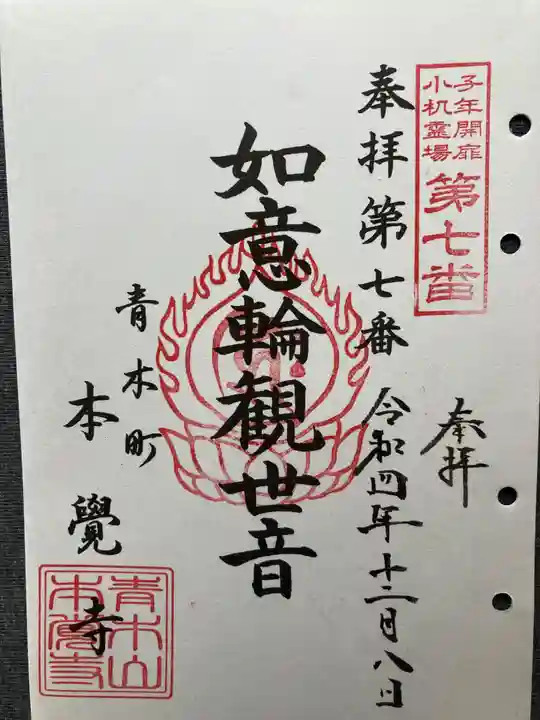 子年開扉
小机霊場
第七番
奉拝
奉拝第七番
令和四年十二月八日
如意輪観世音
青木町
本覺寺
青木山
本覺寺